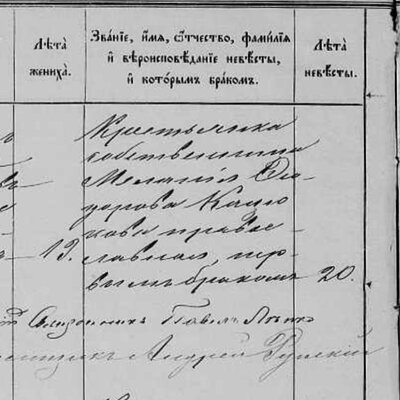 Лѣта
жениха.
Званіе, имя, отчество, фамилія
и вѣроисповѣданіе невѣсты,
и которымъ бракомъ.
Лѣта
невѣсты.
Крестьянка
собственница
Меланія Ѳео-
дорова
православ-
лавная, пер-
вымъ бракомъ
19.
20.
Священникъ Павелъ
Андрей